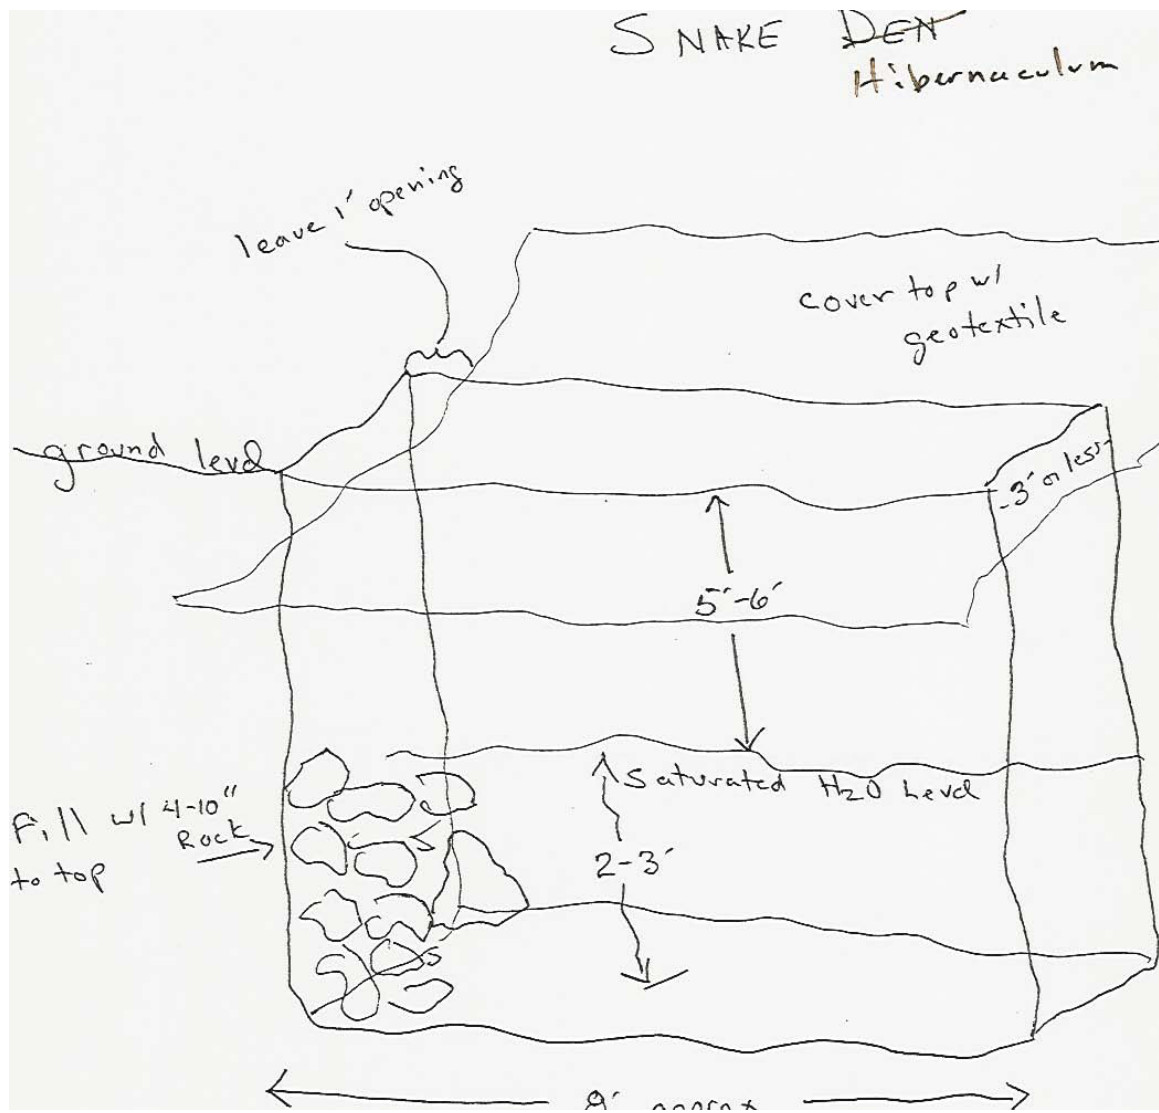 SNAKE DEN
Hibernaculum
leave 1' opening
cover top w/
geotextile
ground level
3' or less
5'-6'
Saturated H2O Level
Fill w/ 4-10"
Rock
to top
2-3'
approx